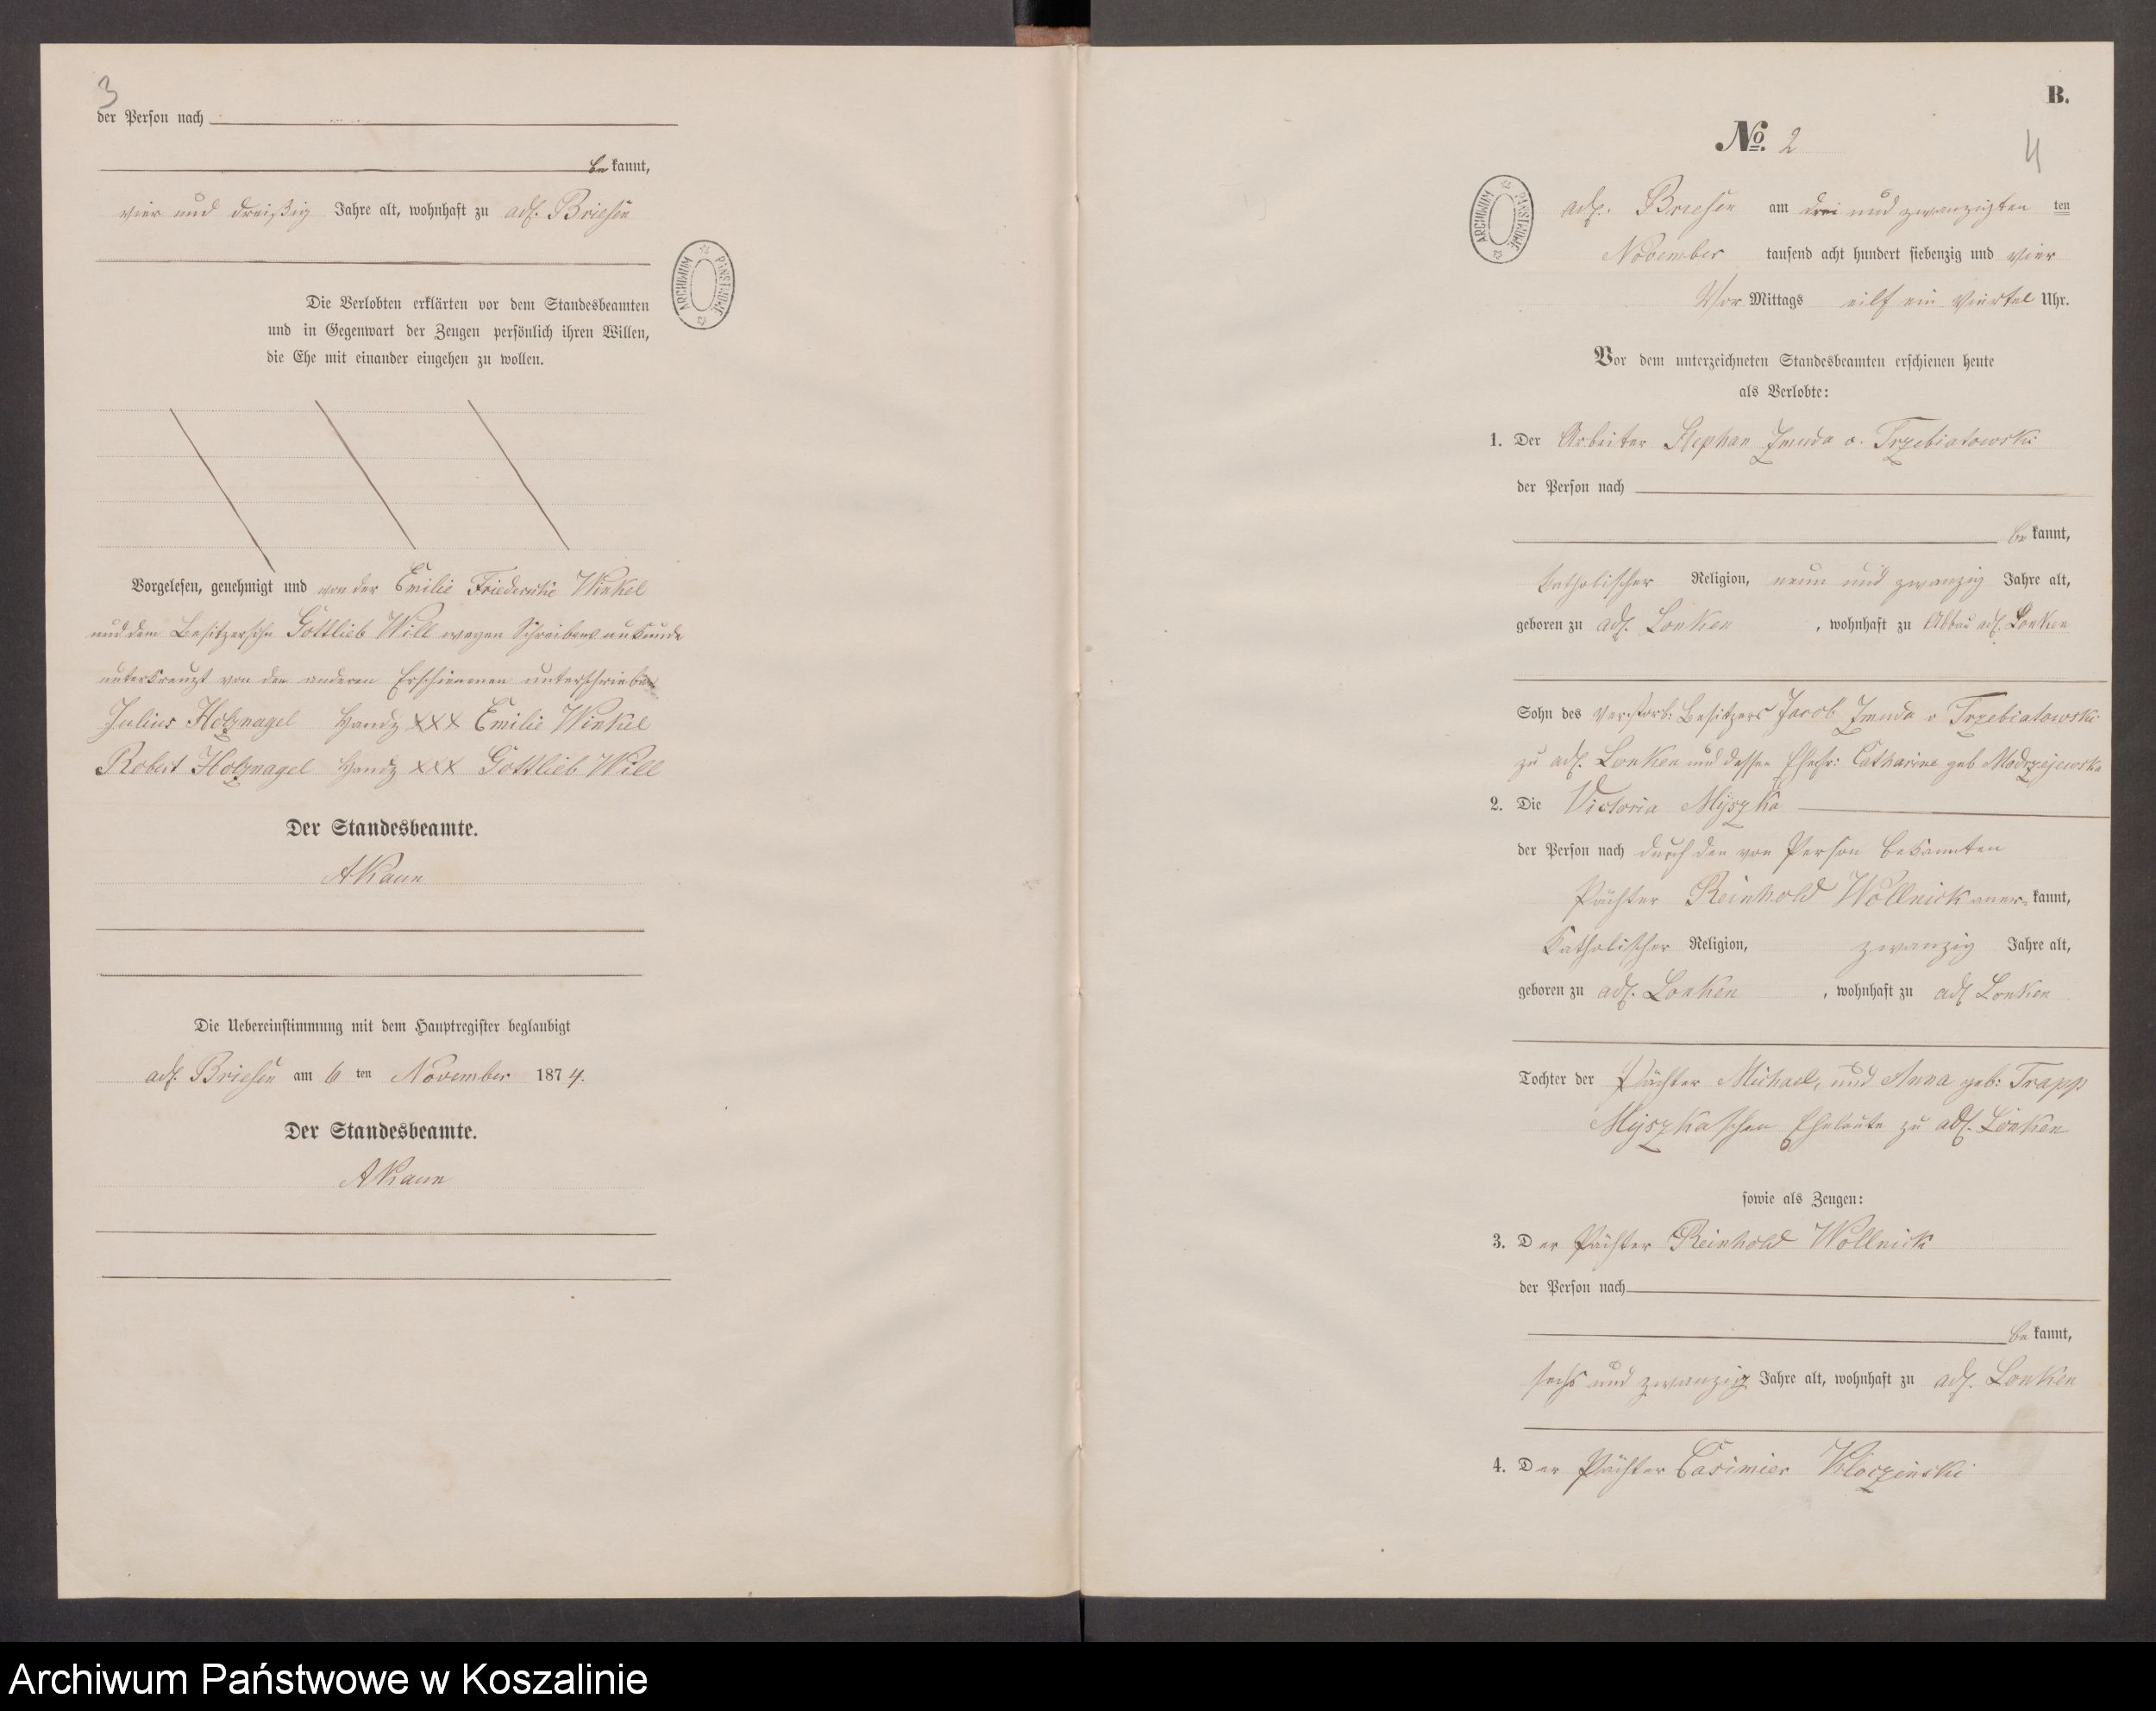 3
der Person nach
be kannt,
vier und dreißig Jahre alt, wohnhaft zu adl. Briesen
ARCHIWUM PAŃSTWOWE
Die Verlobten erklärten vor dem Standesbeamten
und in Gegenwart der Zeugen persönlich ihren Willen,
die Ehe mit einander eingehen zu wollen.
Vorgelesen, genehmigt und von der Emilie Friederike Winkel
und dem Besitzersohn Gottlieb Will wegen Schreibensunkunde
unterkreuzt von den anderen Erschienenen unterschrieben
Julius Holznagel Handz XXX Emilie Winkel
Robert Holznagel Handz XXX Gottlieb Will
Der Standesbeamte.
AKaun
Die Uebereinstimmung mit dem Hauptregister beglaubigt
adl. Briesen am 6 ten November 1874.
Der Standesbeamte.
AKaun
B.
No. 2
4
ARCHIWUM PAŃSTWOWE
adl. Briesen am drei und zwanzigten ten
November tausend acht hundert siebenzig und vier
Vor Mittags eilf ein Viertel Uhr.
Vor dem unterzeichneten Standesbeamten erschienen heute
als Verlobte:
1. Der Arbeiter Stephan Zmuda v. Trzebiatowski
der Person nach
be kannt,
katholischer Religion, neun und zwanzig Jahre alt,
geboren zu adl. Lonken , wohnhaft zu Abbau adl. Lonken
Sohn des verstorb. Besitzers Jacob Zmuda v Trzebiatowski
zu adl. Lonken und dessen Ehefr: Catharine geb Modrzejewska
2. Die Victoria Myszka
der Person nach durch den von Person bekannten
Pächter Reinhold Wollnick aner- kannt,
katholischer Religion, zwanzig Jahre alt,
geboren zu adl. Lonken , wohnhaft zu adl Lonken
Tochter der Pächter Michael, und Anna geb: Trapp
Myszkaschen Eheleute zu adl. Lonken
sowie als Zeugen:
3. Der Pächter Reinhold Wollnick
der Person nach
be kannt,
sechs und zwanzig Jahre alt, wohnhaft zu adl. Lonken
4. Der Pächter Casimier Kloczinski
Archiwum Państwowe w Koszalinie